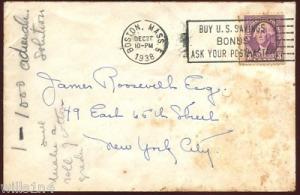 BOSTON, MASS
DEC 27
10-PM
1938
BUY U.S. SAVINGS
BONDS
ASK YOUR POSTMASTER
James Roosevelt Esq.
49 East 65th Street
New York City
1-1000 adrenalin
solution
and
roll of